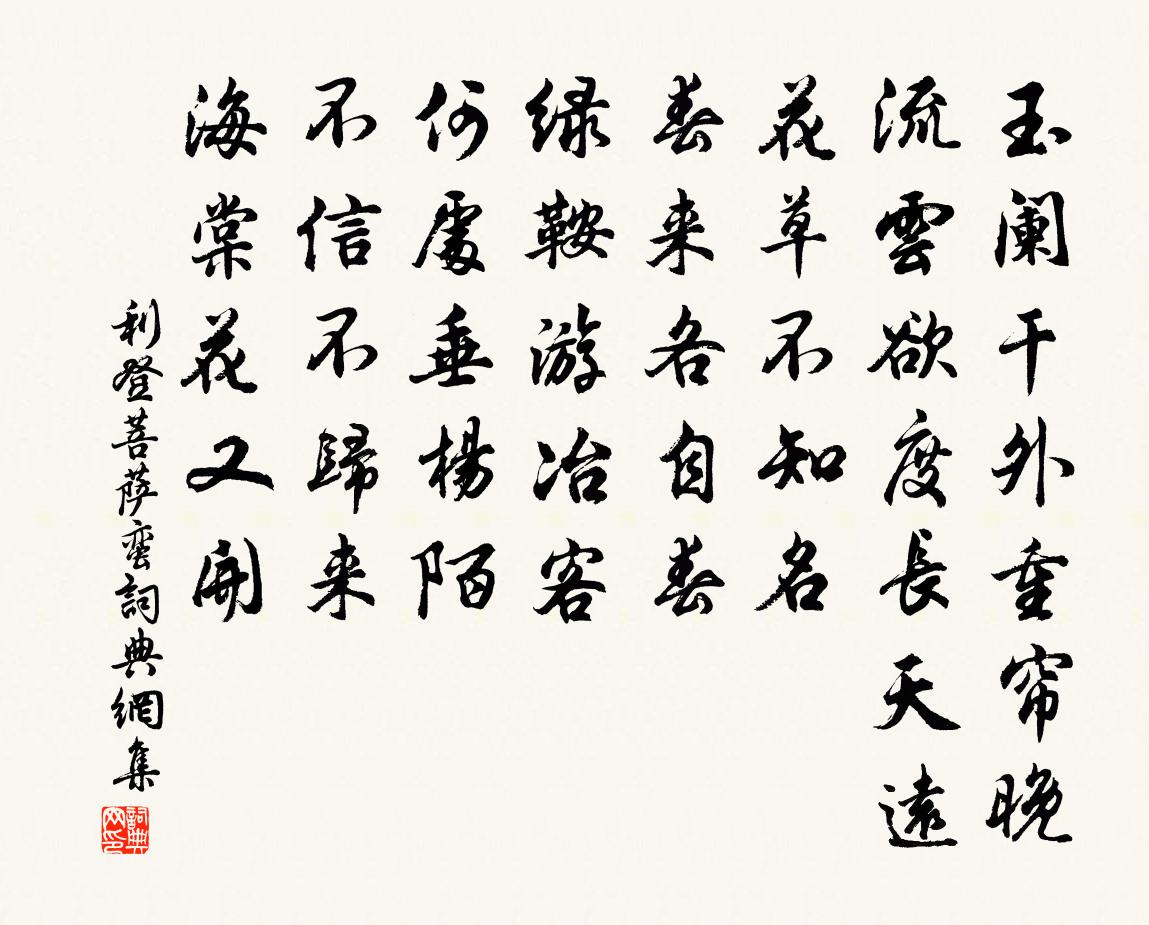 玉阑干外重帘晚
流雲欲度長天遠
花草不知名
春来各自春
绿鞍游冶客
何處垂楊陌
不信不歸来
海棠花又開
利登菩萨蛮詞典網集
詞典网印